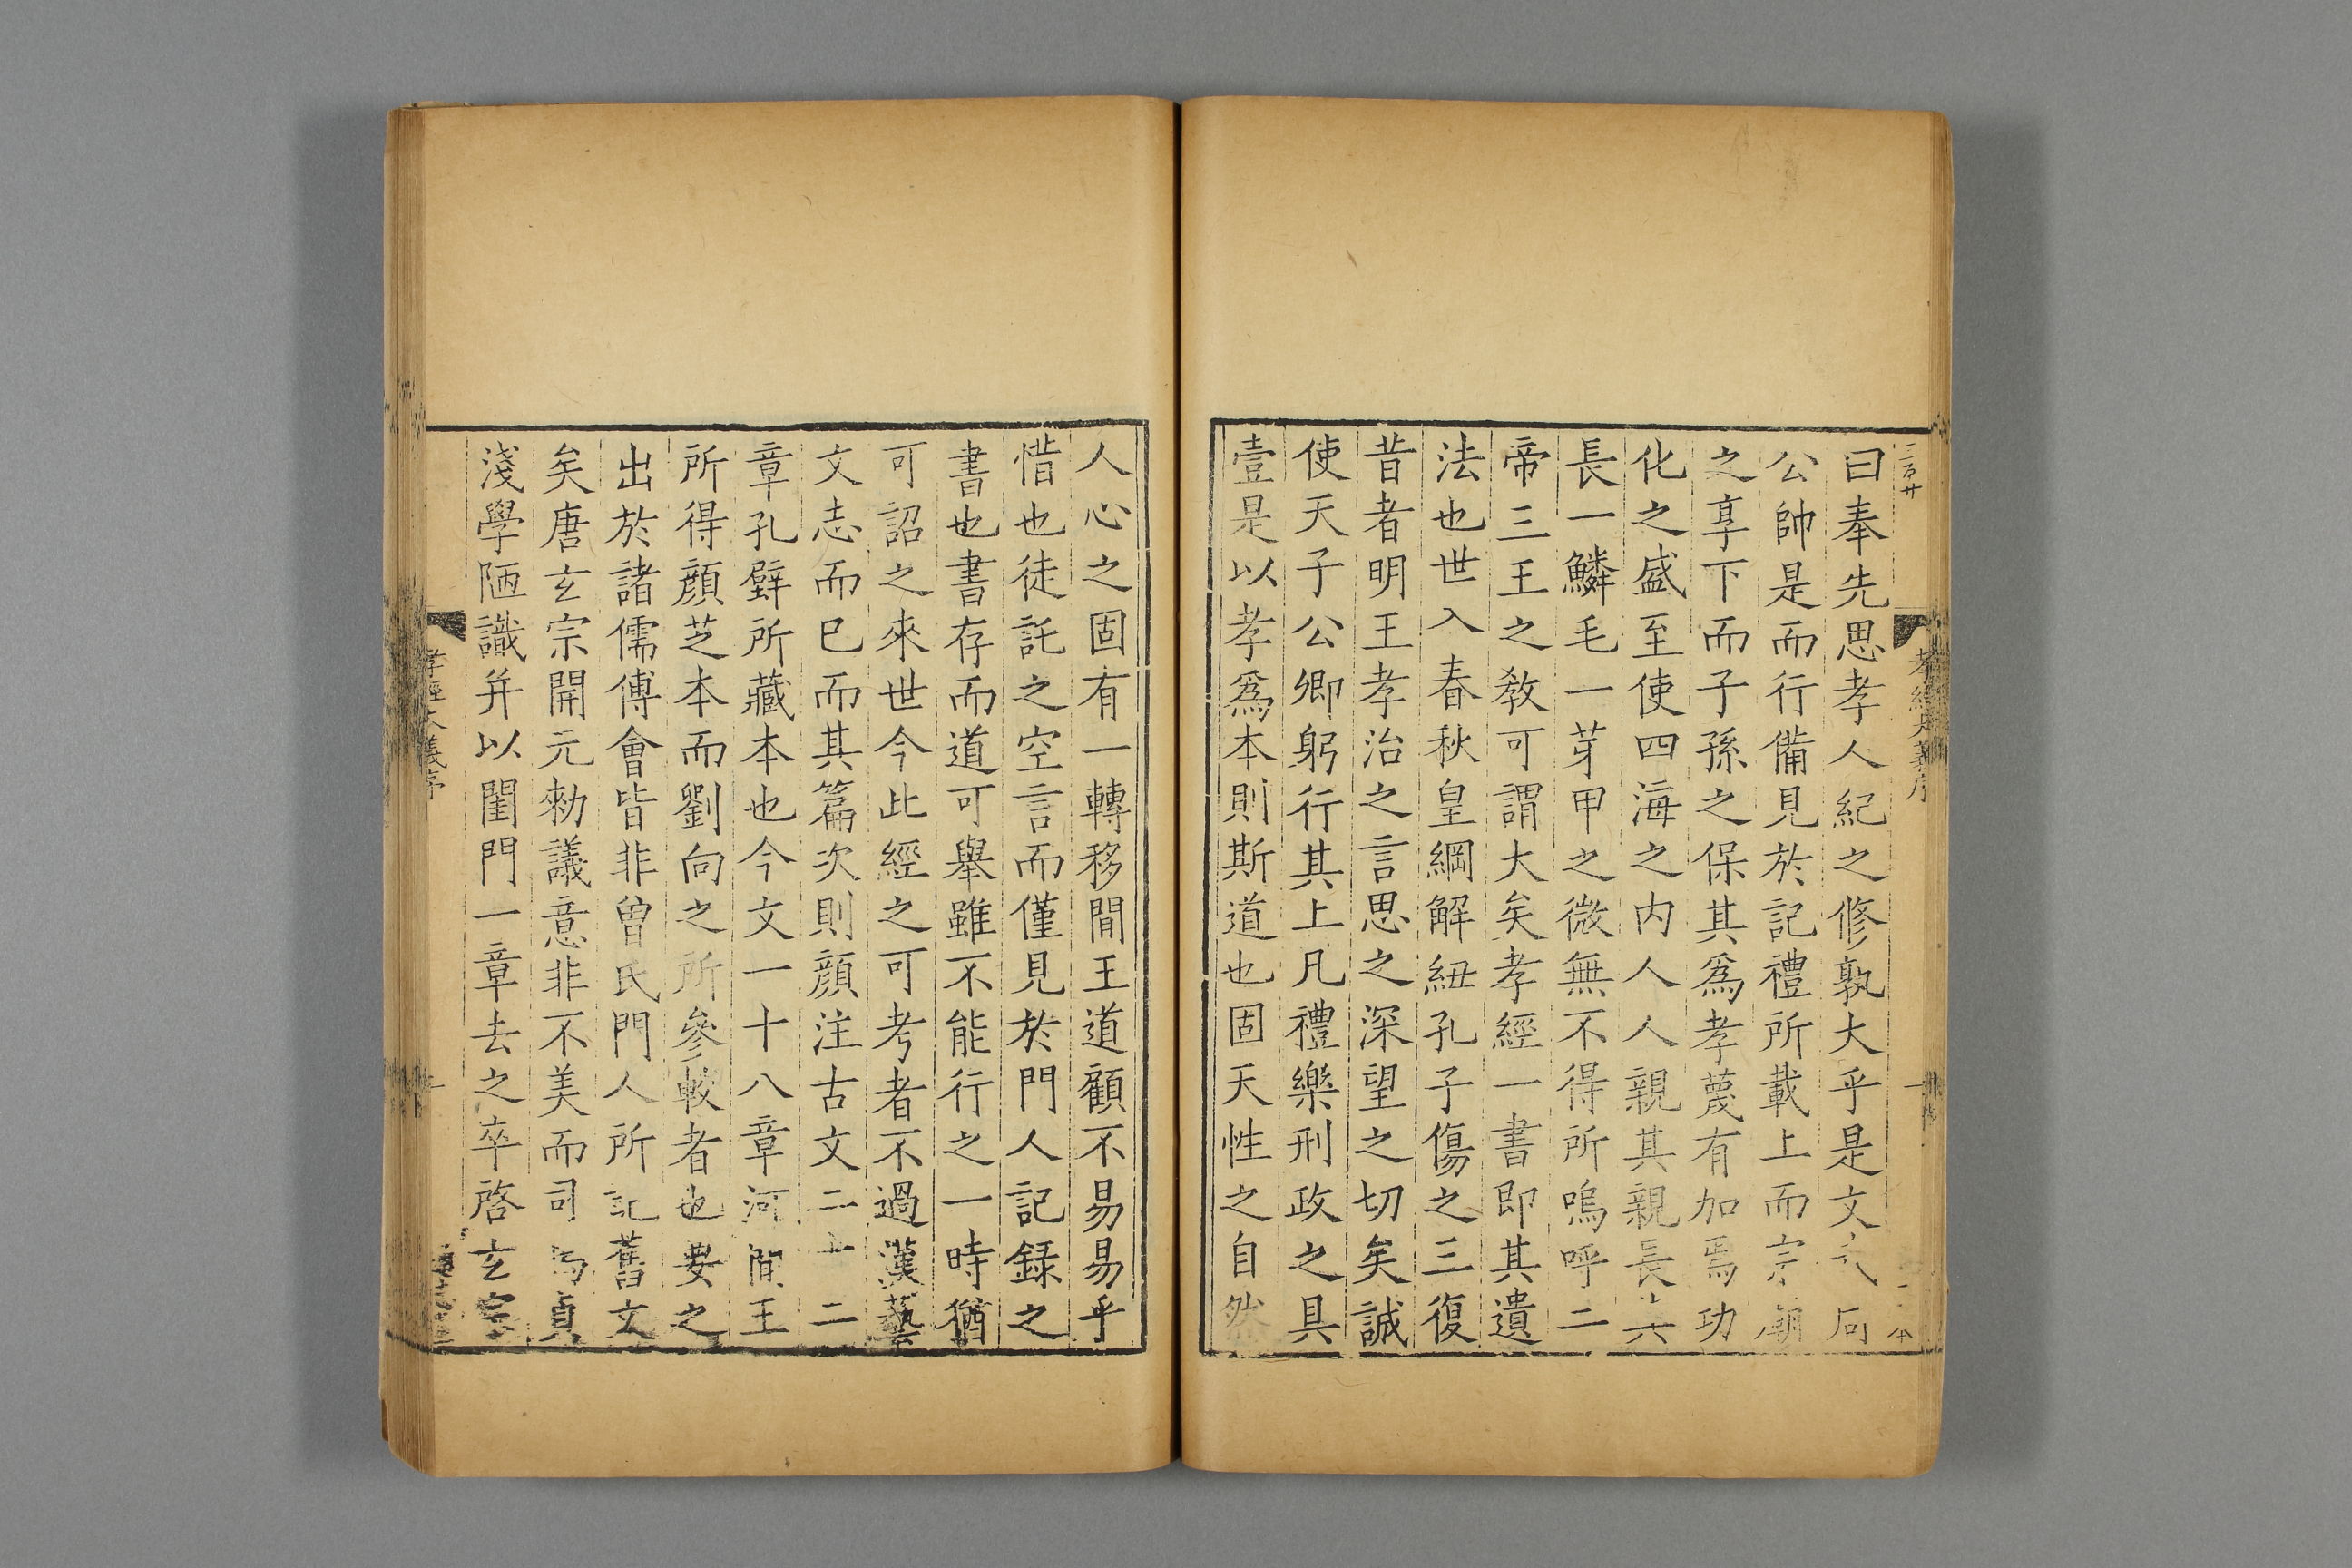 三百廿
孝經大義序
一
曰奉先思孝人紀之修孰大乎是文
公帥是而行備見於記禮所載上而宗廟
之享下而子孫之保其爲孝蔑有加焉功
化之盛至使四海之内人人親其親長其
長一鱗毛一芽甲之微無不得所嗚呼二
帝三王之教可謂大矣孝經一書即其遺
法也世入春秋皇綱解紐孔子傷之三復
昔者明王孝治之言思之深望之切矣誠
使天子公卿躬行其上凡禮樂刑政之具
壹是以孝爲本則斯道也固天性之自然
人心之固有一轉移閒王道顧不易易乎
惜也徒託之空言而僅見於門人記録之
書也書存而道可舉雖不能行之一時猶
可詔之來世今此經之可考者不過漢藝
文志而已而其篇次則顏注古文二十二
章孔壁所藏本也今文一十八章河閒王
所得顏芝本而劉向之所參較者也要之
出於諸儒傅會皆非曾氏門人所記舊文
矣唐玄宗開元勑議意非不美而司馬貞
淺學陋識并以閨門一章去之卒啓玄宗
孝經大義序